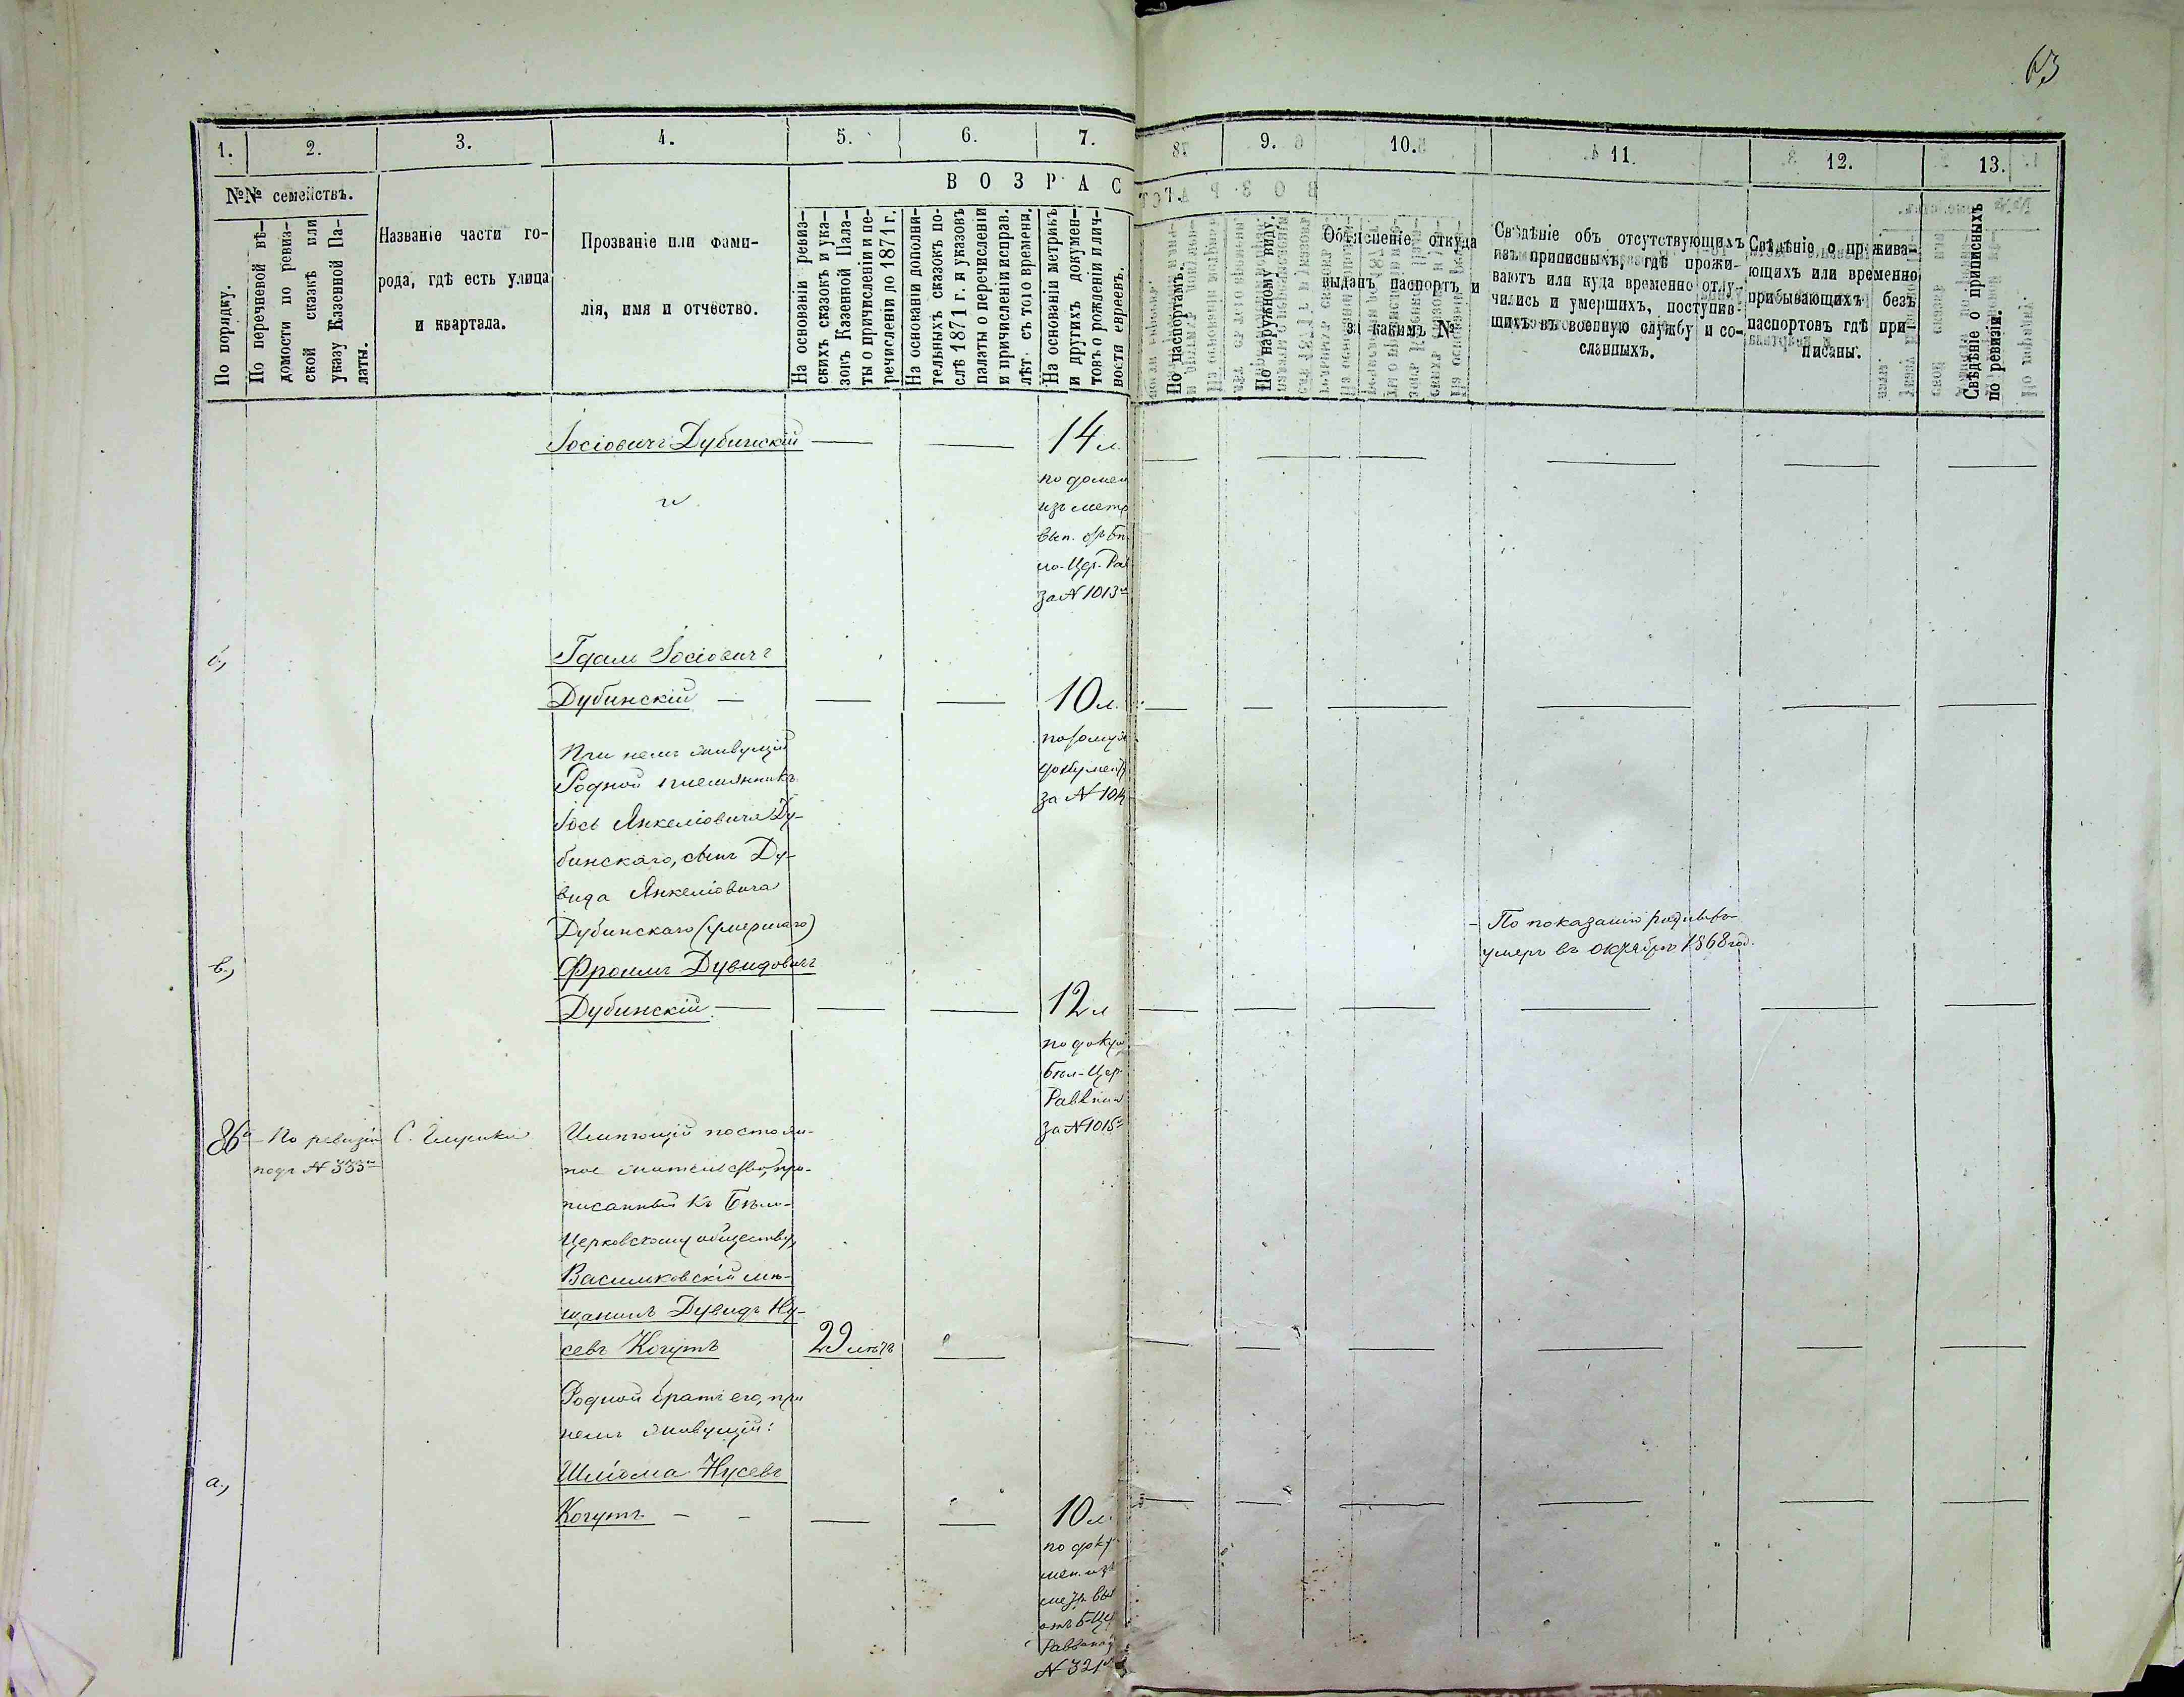 63
1. 2. 3. 4. 5. 6. 7. 9. 10. 11. 12. 13.
№№ семействъ.
В О З Р А С
По порядку.
По перечневой вѣ-
домости по ревиз-
ской сказкѣ или
указу Казенной Па-
латы.
Названіе части го-
рода, гдѣ есть улица
и квартала.
Прозваніе или фами-
лія, имя и отчество.
На основаніи ревиз-
скихъ сказокъ и ука-
зовъ Казенной Пала-
ты о причисленіи и пе-
речисленіи до 1871 г.
На основаніи дополни-
тельныхъ сказокъ по-
слѣ 1871 г. и указовъ
палаты о перечисленіи
и причисленіи исправ.
лѣт. съ того времени.
На основаніи метрикъ
и другихъ докумен-
товъ о рожденіи и лич-
ности евреевъ.
По паспортамъ.
По наружному виду.
Объясненіе откуда
выданъ паспортъ и
за какимъ №
Свѣдѣніе объ отсутствующихъ
изъ приписныхъ, гдѣ прожи-
ваютъ или куда временно отлу-
чились и умершихъ, поступив-
шихъ въ военную службу и со-
сланныхъ.
Свѣдѣніе о прожива-
ющихъ или временно
прибывающихъ безъ
паспортовъ гдѣ при-
писаны.
Свѣдѣніе о приписныхъ
по ревизіи.
Іосіовичъ Дубинскій — — 14 л.
изъ метр
вып.
за № 1013
б.,
Іосіовичъ
Дубинскій — — — 10 л.
за № 101
При немъ живущій
Родной племянникъ
Іось Анкеліовича Ду-
бинскаго, сынъ Ду-
вида Анкеліовича
Дубинскаго (умершаго)
в.,
Фроимъ Дувидовичъ
Дубинскій — — — 12 л
По показанію
умеръ въ октябрѣ 1868 год.
по доку
Бѣл-Цер
Раввин
за № 1015
86 По ревизіи
подъ № 333
Имѣющій постоян-
ное жительство, при-
писанный къ Бѣло-
Церковскому обществу,
Васильковскій мѣ-
щанинъ Дувидъ Ну-
севъ Когутъ 29 лѣтъ —
Родной братъ его, при
немъ живущій:
а.,
Шліома Нусевъ
Когутъ — — — — 10 л.
по доку
мен. изъ
отъ Б-Це
№ 321